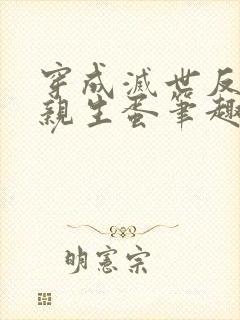 穿成滅世反
親生蛋筆趣
明憲宗